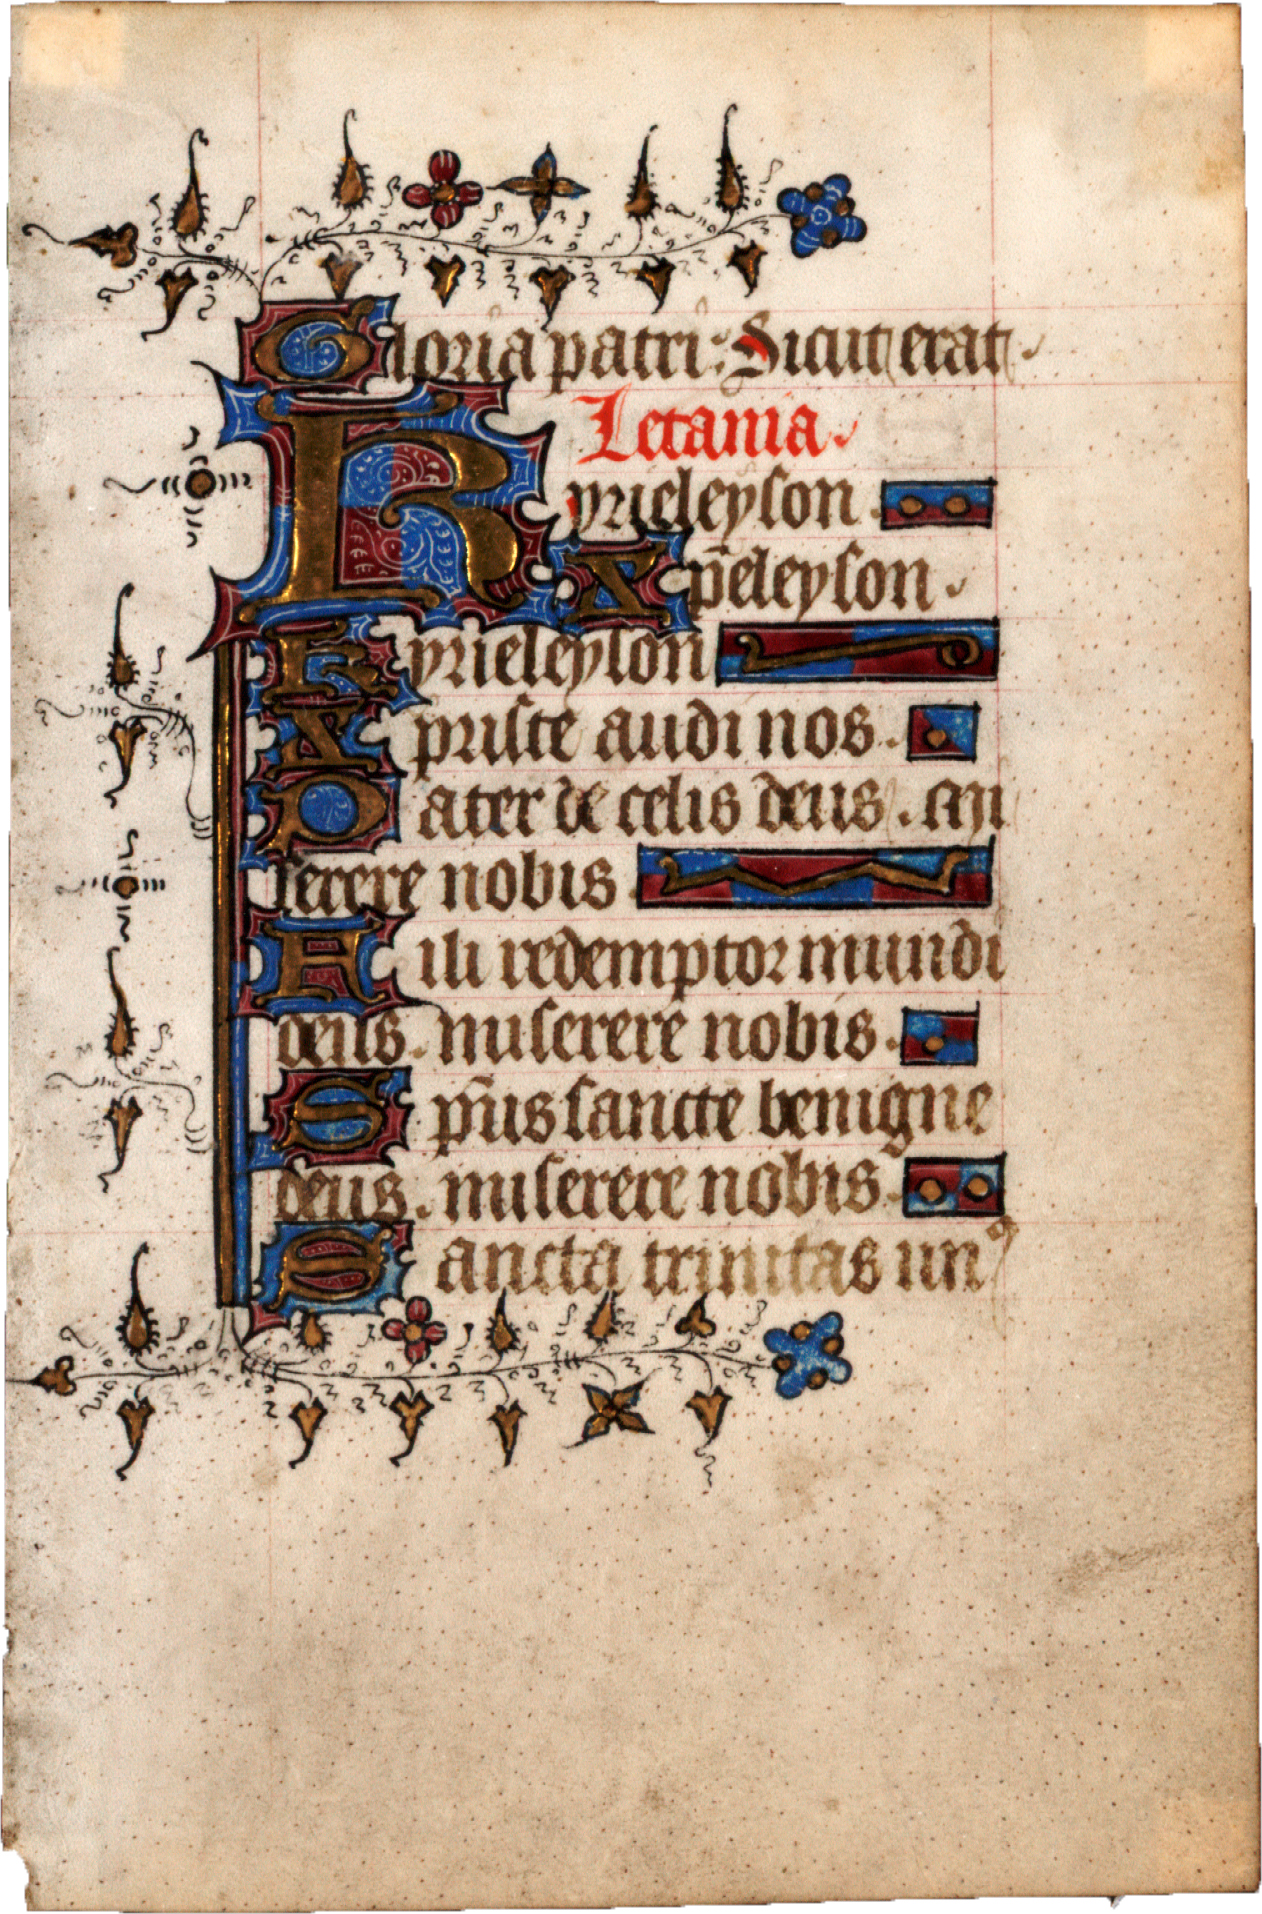 Gloria patri: Sicut erat.
Letania.
Kyrieleyson.
Xp̄eleyson.
Kyrieleyson
Xpriste audi nos.
Pater de celis deus. mi
serere nobis
Fili redemptor mundi
deus. miserere nobis.
Sp̄us sancte benigne
deus. miserere nobis.
Sancta trinitas un